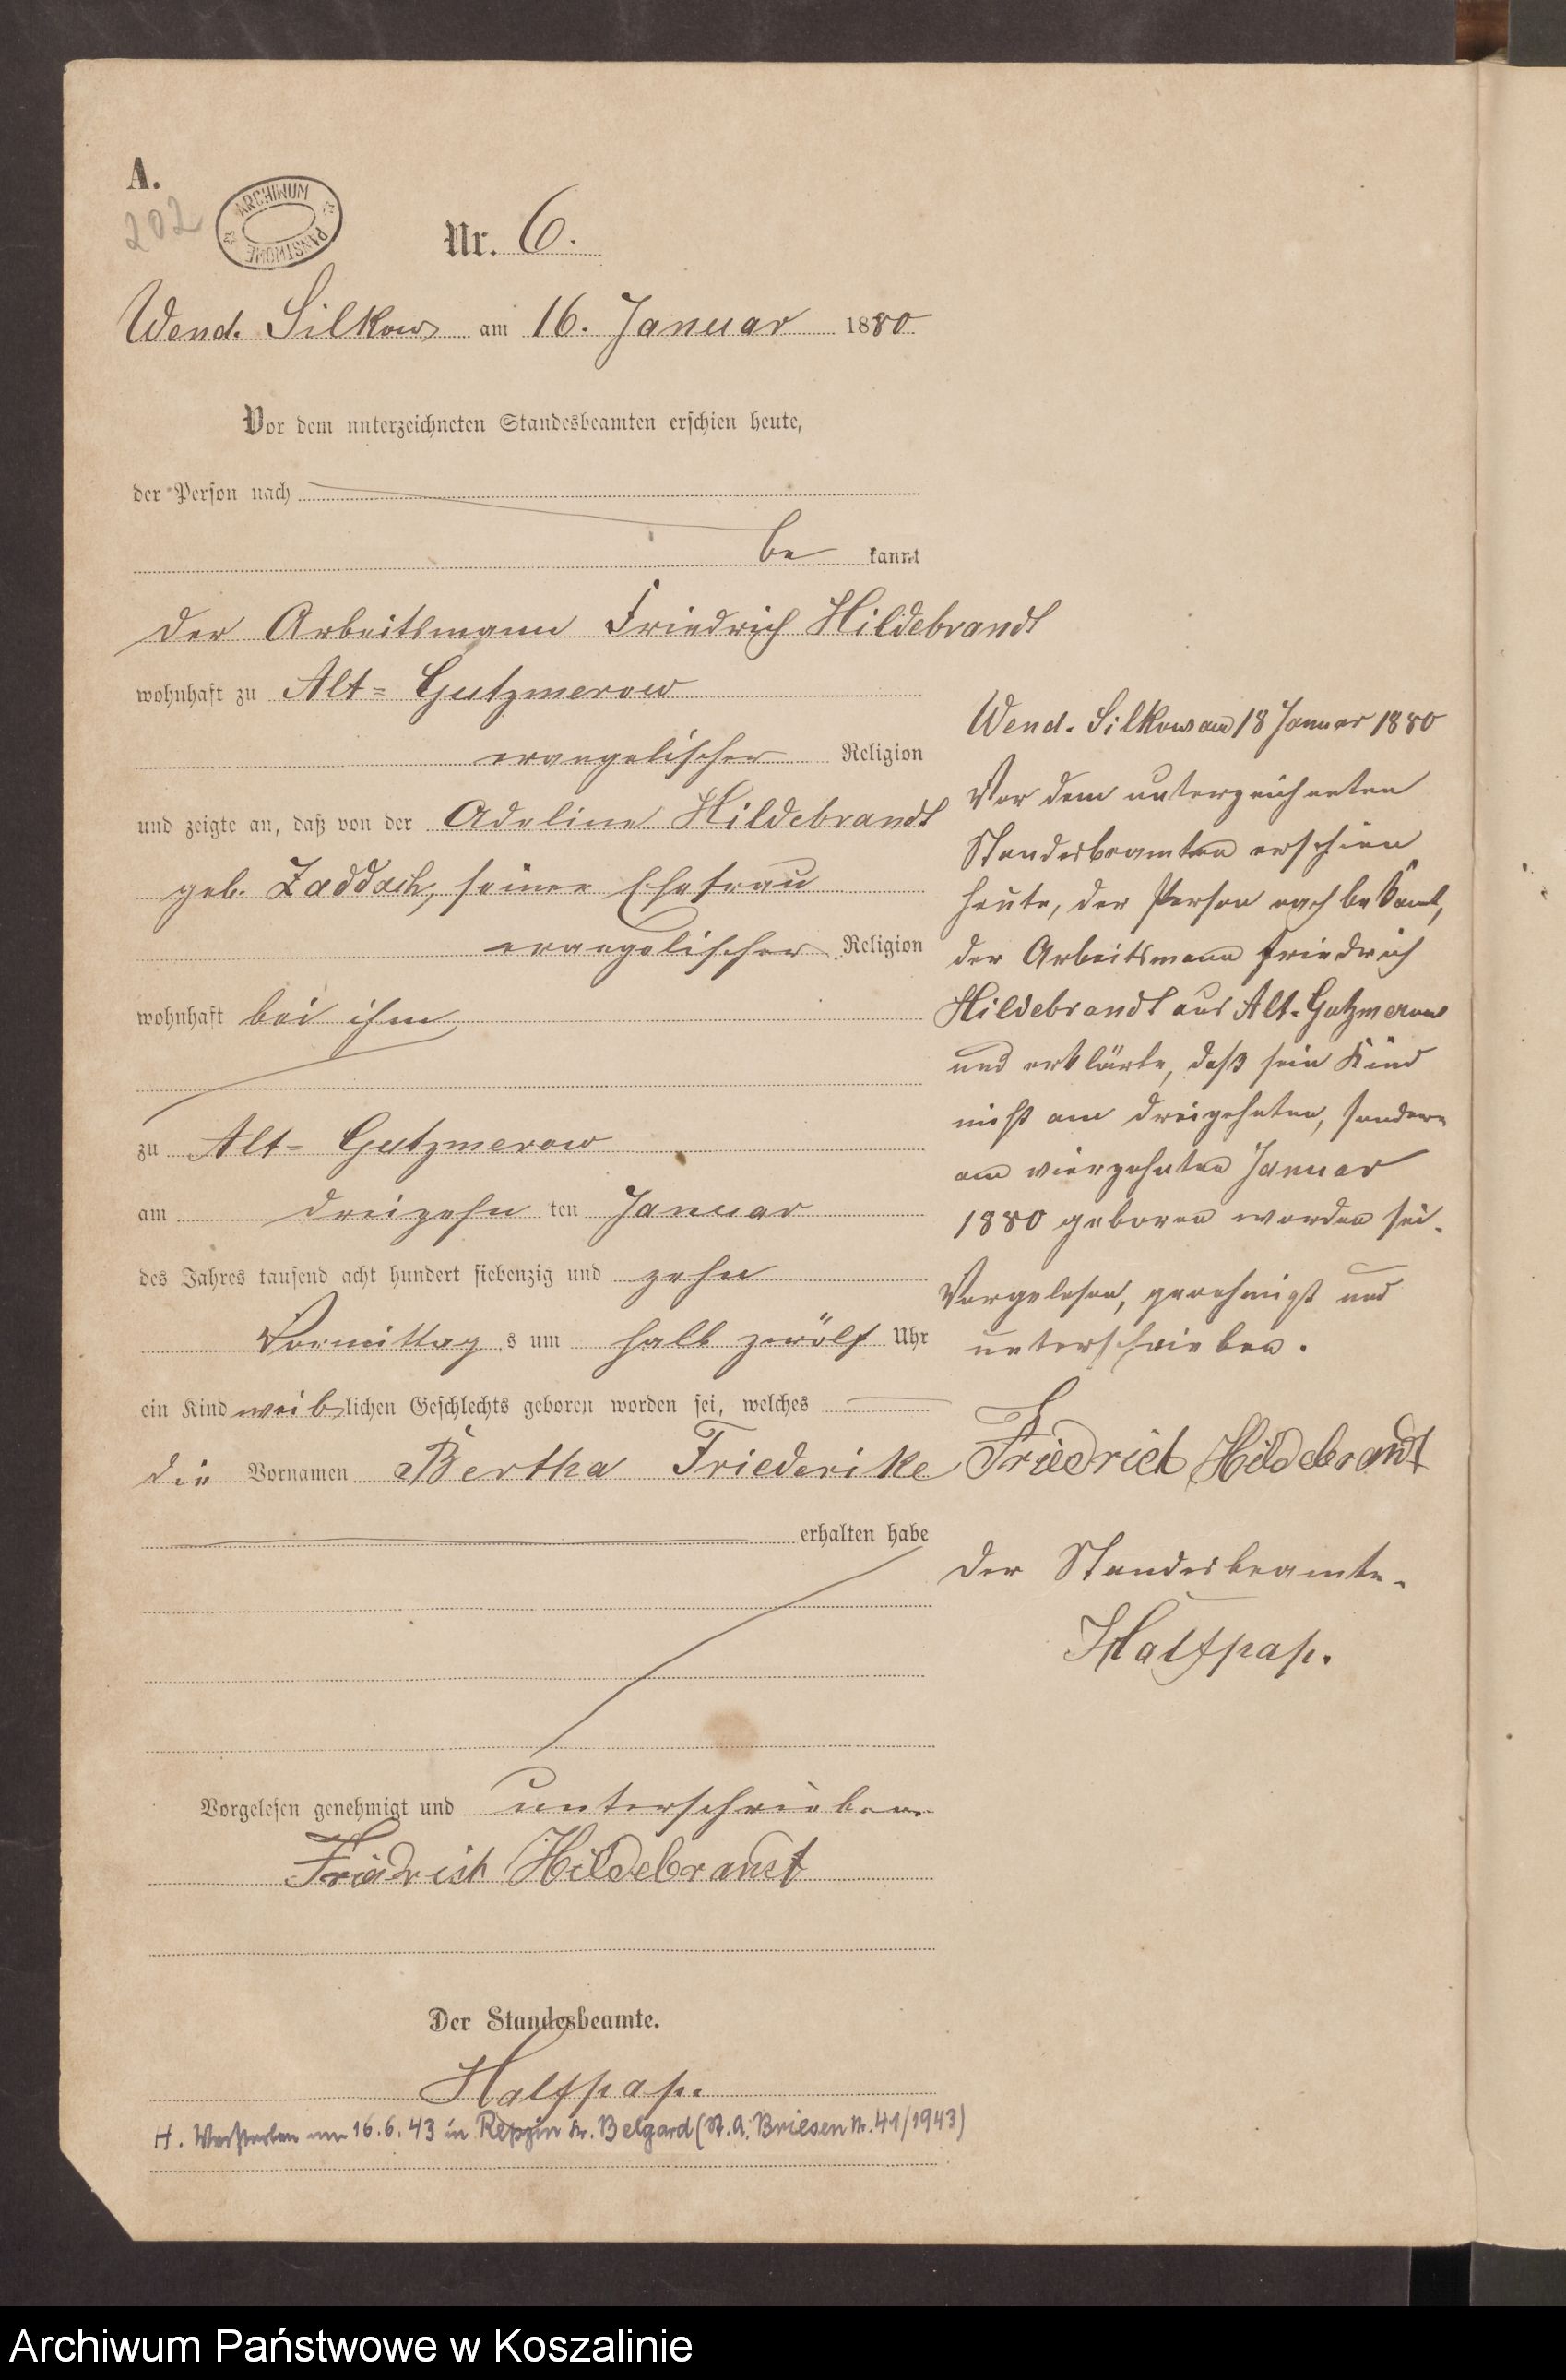 A.
202
ARCHIWUM
PAŃSTWOWE
Nr. 6.
Wend. Silkow am 16. Januar 1880
Vor dem unterzeichneten Standesbeamten erschien heute,
der Person nach
be kannt
der Arbeitsmann Friedrich Hildebrandt
wohnhaft zu Alt- Gutzmerow
evangelischer Religion
und zeigte an, daß von der Adeline Hildebrandt
geb. Zaddach, seiner Ehefrau
evangelischer Religion
wohnhaft bei ihm
zu Alt- Gutzmerow
am dreizehn ten Januar
des Jahres tausend acht hundert siebenzig und zehn
Vormittag s um halb zwölf Uhr
ein Kind weiblichen Geschlechts geboren worden sei, welches
die Vornamen Bertha Friederike
erhalten habe
Vorgelesen genehmigt und unterschrieben.
Friedrich Hildebrandt
Der Standesbeamte.
Halfpap.
H. Verstorben am 16.6.43 in Repzin Kr. Belgard (St. A. Briesen Nr. 41/1943)
Wend. Silkow am 18 Januar 1880
Vor dem unterzeichneten
Standesbeamten erschien
heute, der Person nach bekannt,
der Arbeitsmann Friedrich
Hildebrandt aus Alt-Gutzmerow
und erklärte, daß sein Kind
nicht am dreizehnten, sondern
am vierzehnten Januar
1880 geboren worden sei.
Vorgelesen, genehmigt und
unterschrieben.
Friedrich Hildebrandt
Der Standesbeamte.
Halfpap.
Archiwum Państwowe w Koszalinie